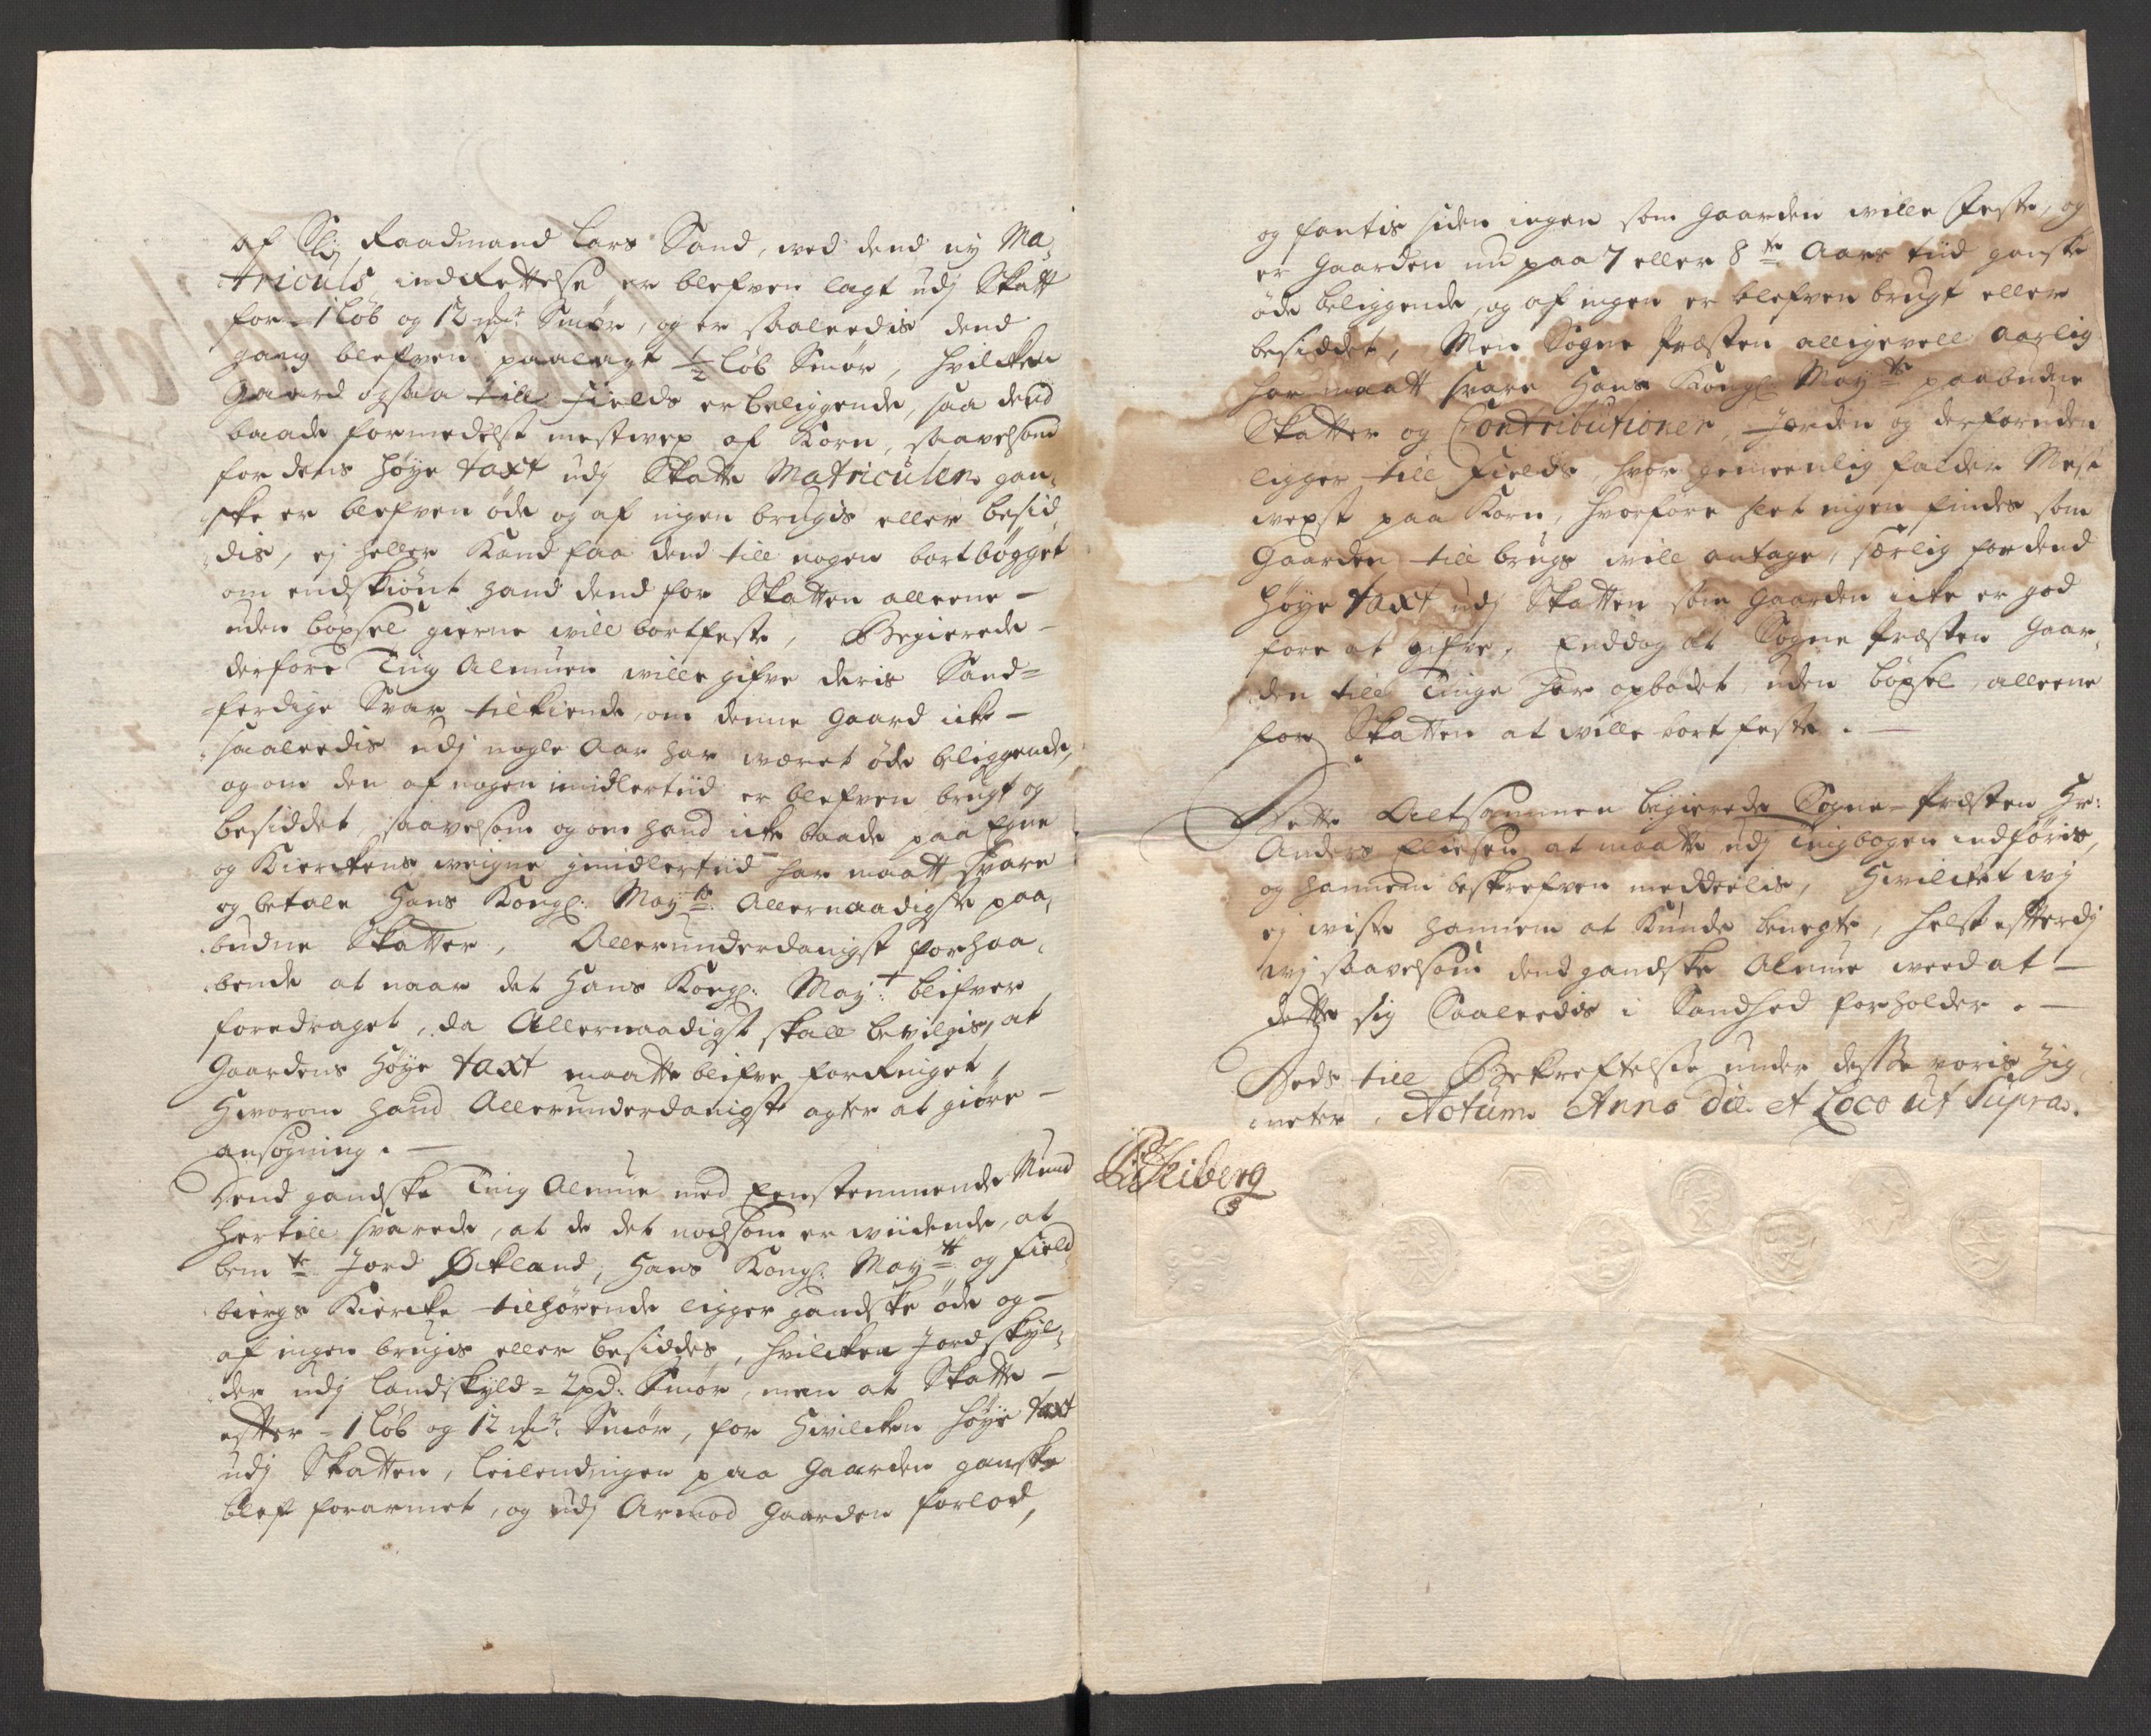 af Slig Raadmand Lars Sand, ved dend ny Ma¬
triculs indRettelse er blefven lagt udj Skatt
for 1 løb og 12 mk: Smør, og er saaleedis dend
gang blefven paalagt ½ løb Smør, hvilcken
Gaard ogsaa till Fields er beliggende, saa dend
baade formedelst mestwex af Korn, saavelsom
for dens høye taxt udj Skatte Matriculen gan¬
ske er blefven øde og af ingen brugis eller besid¬
dis, ej heller Kand faa dend till nogen bortbøgget
om endskiønt hand dend for Skatten alleene -
uden böxsel gierne vill bortfeste, Begierede -
derfore Ting Almuen wille gifve deris Sand=
ferdige Svar tilkiende, om denne Gaard icke -
saaleedis udj nogle Aar har været øde beliggende,
og om den af nogen imidlertiid er blefven brugt og
besiddet, saavelsom og om hand icke baade paa Egne
og Kierckens weigne imidlertiid har maatt svare
og betale Hans Kongl: May:ts: Allernaadigste paa¬
budne Skatter, Allerunderdanigst forhaa¬
bende at naar det Hans Kongl: May:t blifver
foredraget, da Allernaadigst skall bevilgis, at
Gaardens Høye taxt maatte blifve forRinget,
Hvorom hand Allerunderdanigste agter at giöre -
ansøgning. -
Dend gandske Ting Almue med Eenstemmende Mund
hertill svarede, at de det nochsom er wiidende, at
bem:te Jord Økland, Hans Kongl: May:ts og Field¬
biergs Kiercke tilhørende ligger gandske øde og -
af ingen brugis eller besiddes, hvilcken Jord skyl¬
der udj landskyld = 2 pd: Smør, men at Skatte -
efter = 1 løb og 12 mk: Smør, for Hvilcken høye taxt
udj Skatten, leilendingen paa Gaarden ganske
blef forarmet, og udj Armod Gaarden forlod,
og fantis siden ingen som Gaarden wille Feste, og
er Gaarden nu paa 7 eller 8:te Aars tiid ganske
øde beliggende, og af ingen er blefven brugt eller
besiddet, Men Sogne Præsten alligevell aarlig
har maatt svare Hans Kongl: May:ts paabudne
Skatter og Contributioner Jorden og derforuden
ligger till Fields, hvor gemeenlig falder Mest
wexst paa Korn, hvorfore slet ingen findes som
Gaarden till brugs will antage, særlig for dend
høye taxt udj Skatten som Gaarden icke er god
fore at gifve, Enddog at Sogne Præsten Gaar¬
den till Tinge har opbødet, uden böxsel, alleene
for Skatten at wille bort feste. -
Dette Altsammen begierede Sogne-Præsten Hr:
Anders Eliesen at maatte udj Tingbogen indføris,
og hannem beskrefven meddeelis, Hvilcket wj
ej wiste hannem at Kunde benegte, helst efterdj
wj saavelsom dend gandske Almue weed at -
dette sig Saaleedis i Sandhed forholder. -
Deds till Bekreftelsse under desse voris Zig¬
neter. Actum Anno Die et Loco ut Supra.
Heiberg